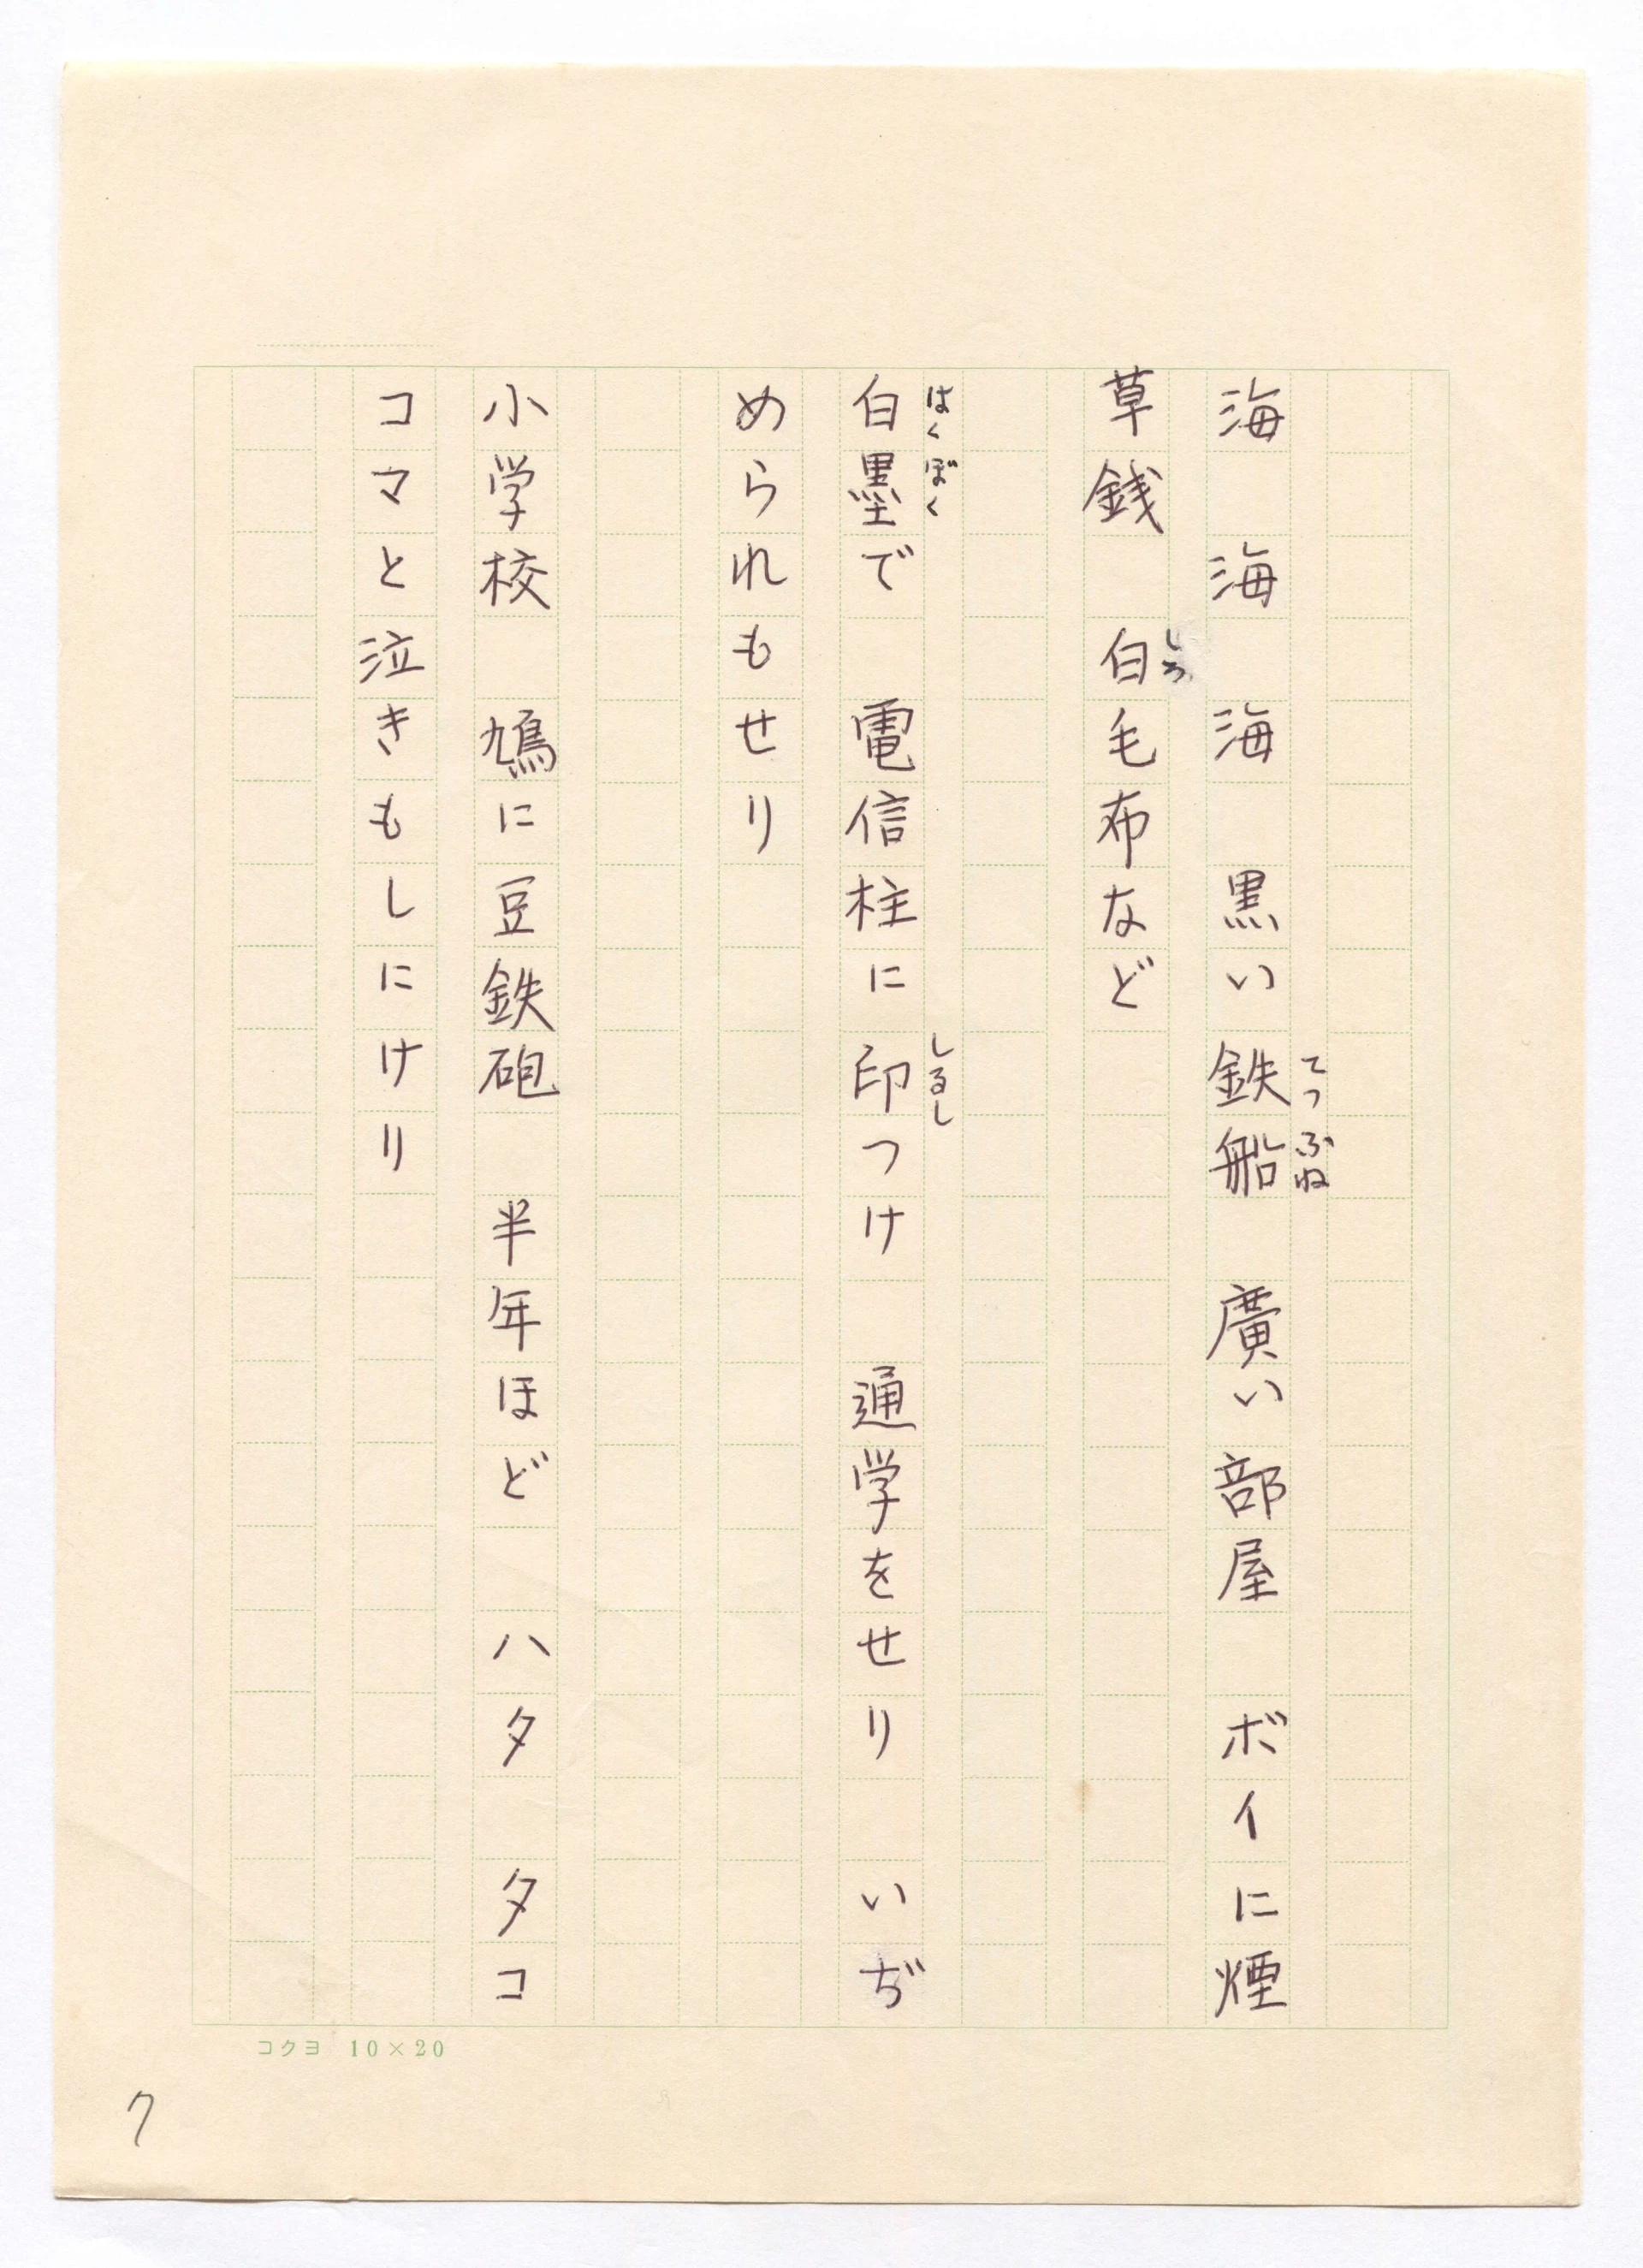 海　海　海　黒い鉄船　廣い部屋　ボイに煙
てつふね
草銭　白毛布など
しろ
白墨で　電信柱に印つけ　通学をせり　いぢ
はくぼく
しるし
められもせり
小学校　鳩に豆鉄砲　半年ほど　ハタ　タコ
コマと泣きもしにけり
コクヨ 10×20
7